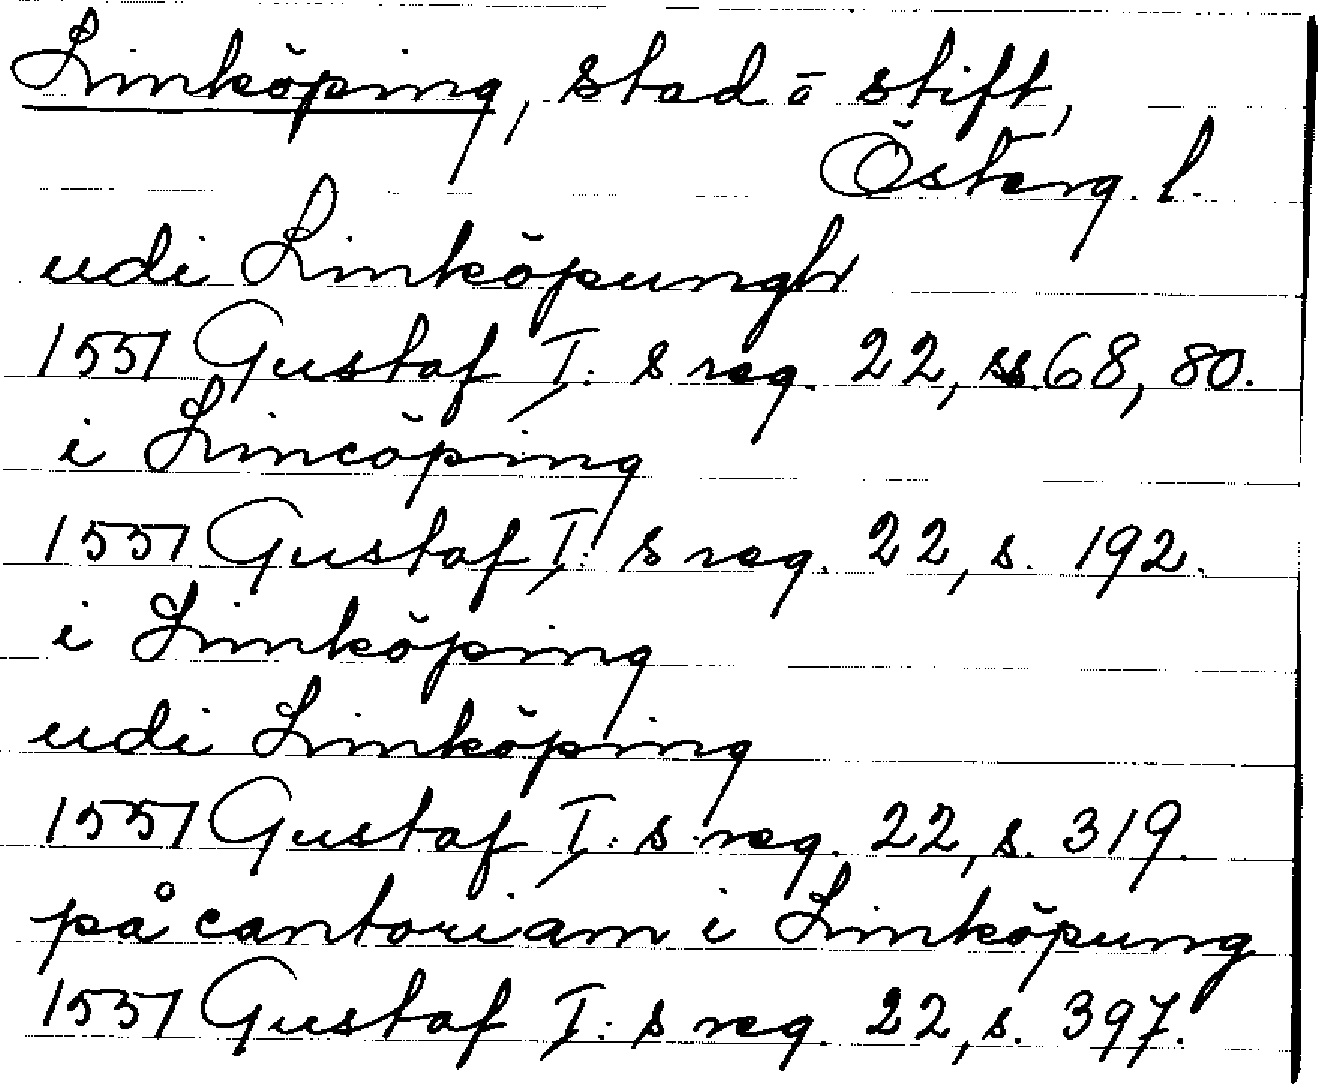 Linköping, stad o stift,
Österg. l.
udi Linköpungh
1551 Gustaf I: s reg. 22, ss. 68, 80.
i Lincöping
1551 Gustaf I: s reg. 22, s. 192.
i Linköping
udi Linköping
1551 Gustaf I: s reg. 22, s. 319.
på cantoriam i Linköpung
1551 Gustaf I: s reg. 22, s. 397.